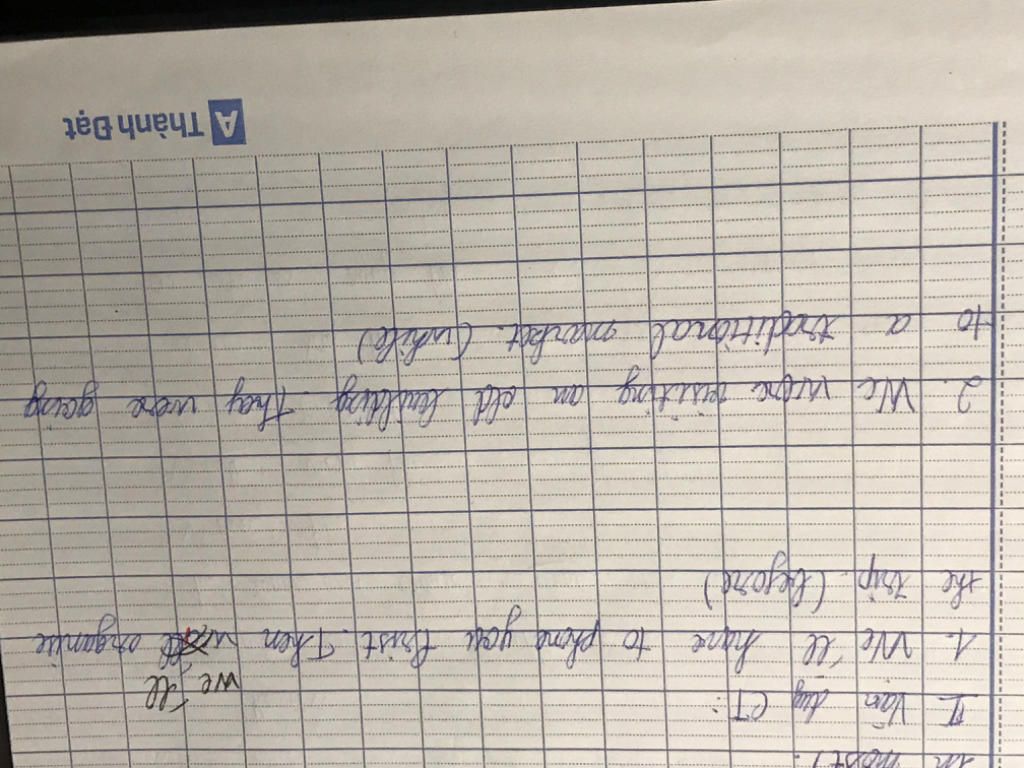 in most).
II. Vận dụg CT:
we'll
1. We 'll have to phone you first. Then organise
the trip. (before)
2. We were visiting an old building. They were going
to a traditional market. (while)
A Thành Đạt